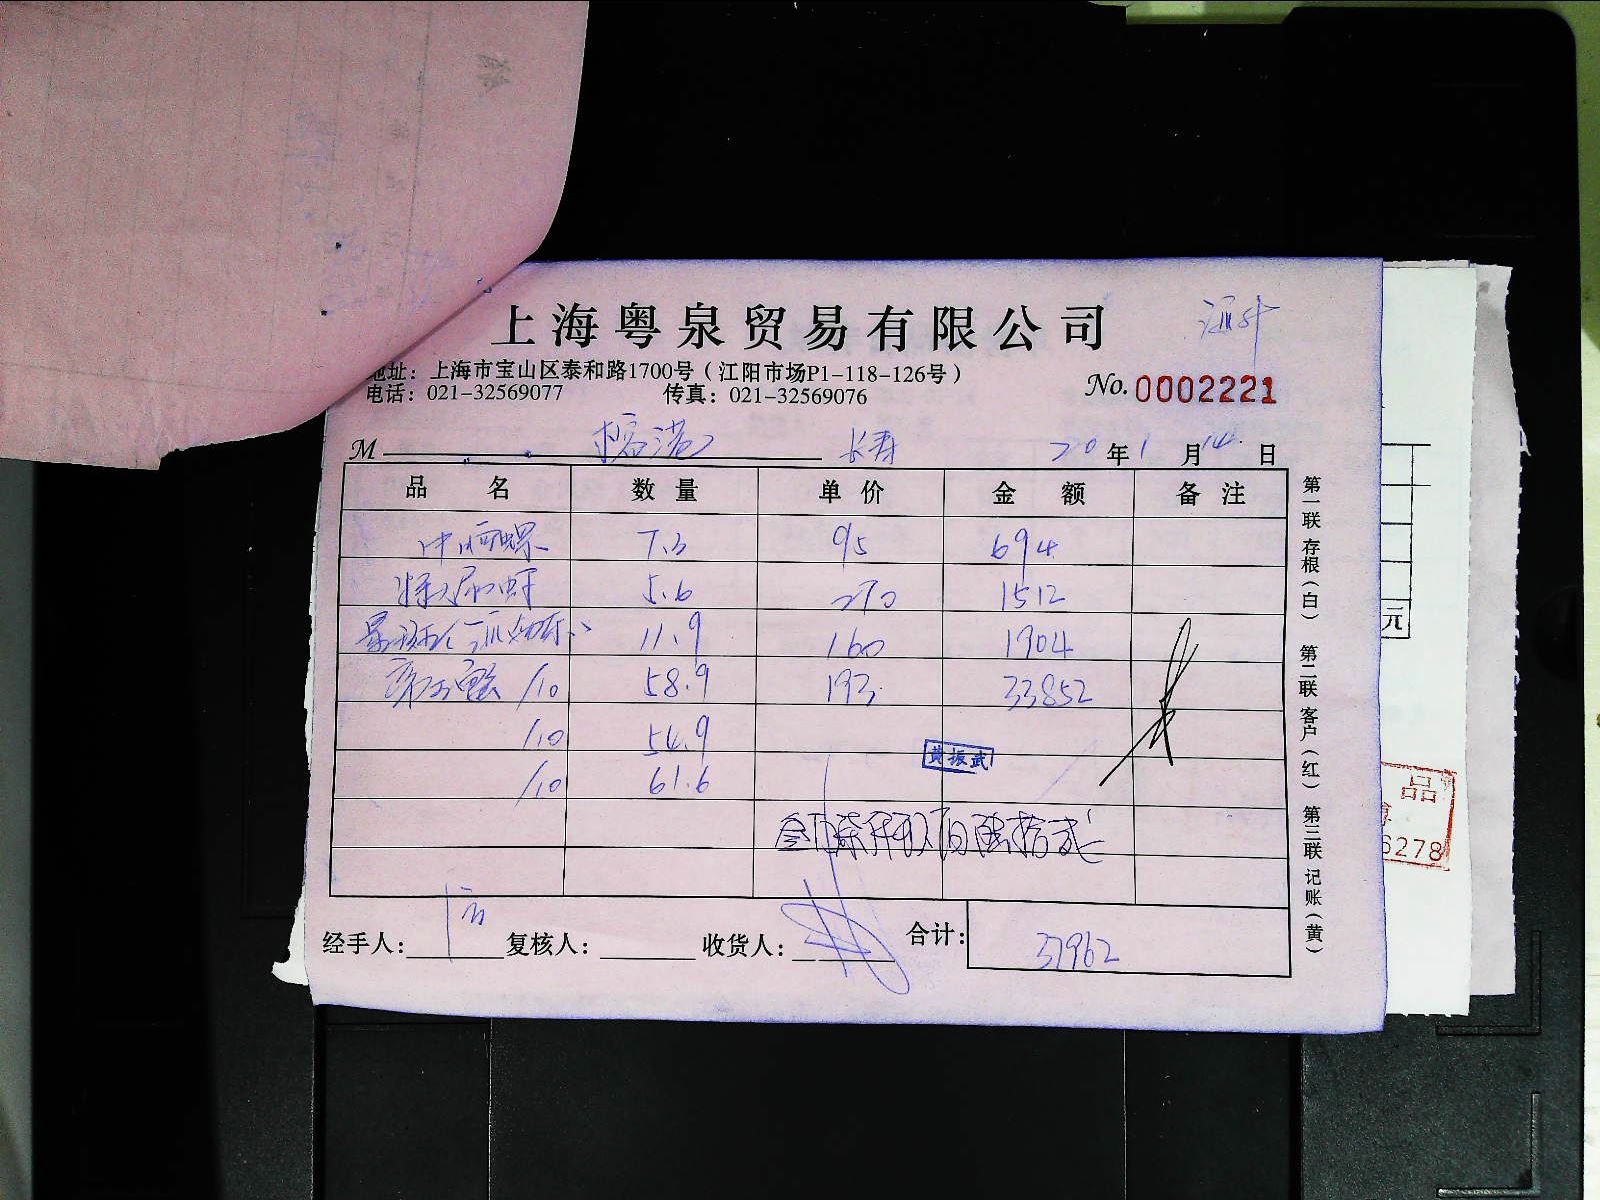 上海粤泉贸易有限公司
地址：上海市宝山区泰和路1700号（江阳市场P1-118-126号）
电话：021-32569077 传真：021-32569076
No. 0002221
M 榕港 长寿 20年1月14日
品名 数量 单价 金额 备注
7.3 95 694
5.6 270 1512
11.9 160 1904
/10 58.9 193 33852
/10 54.9
/10 61.6
黄振武
叁万柒仟玖百陆拾贰
经手人： 复核人： 收货人： 合计： 37962
第一联存根（白） 第二联客户（红） 第三联记账（黄）
元
品
6278